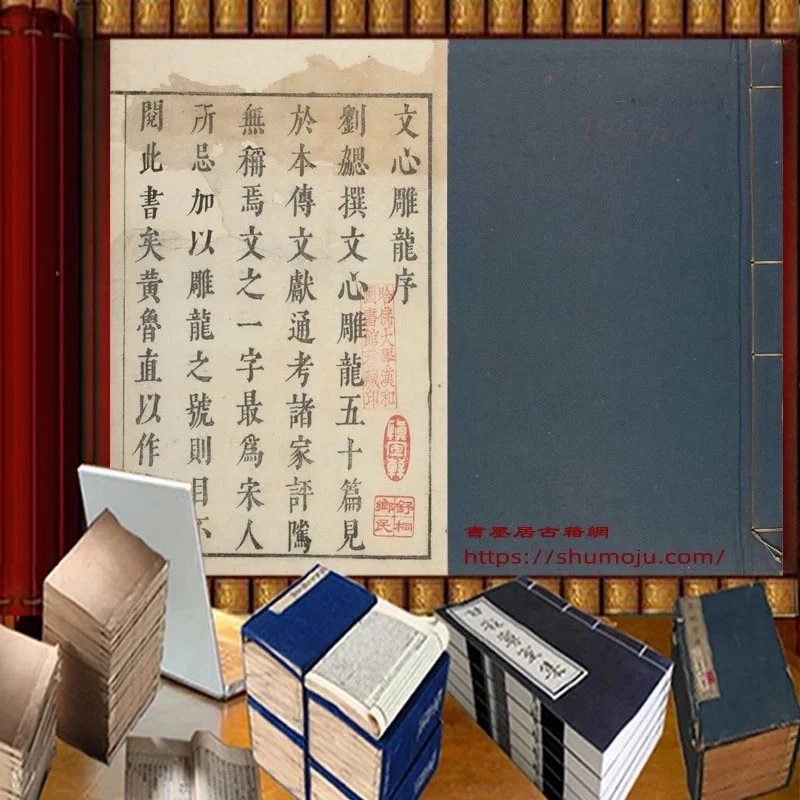 文心雕龍序
劉勰撰文心雕龍五十篇見
於本傳文獻通考諸家評隲
無稱焉文之一字最爲宋人
所忌加以雕龍之號則目不
閱此書矣黃魯直以作
哈佛大學漢和
圖書館珍藏印
慎宜軒
舒桐
鄉民
書墨居古籍網
https://shumoju.com/